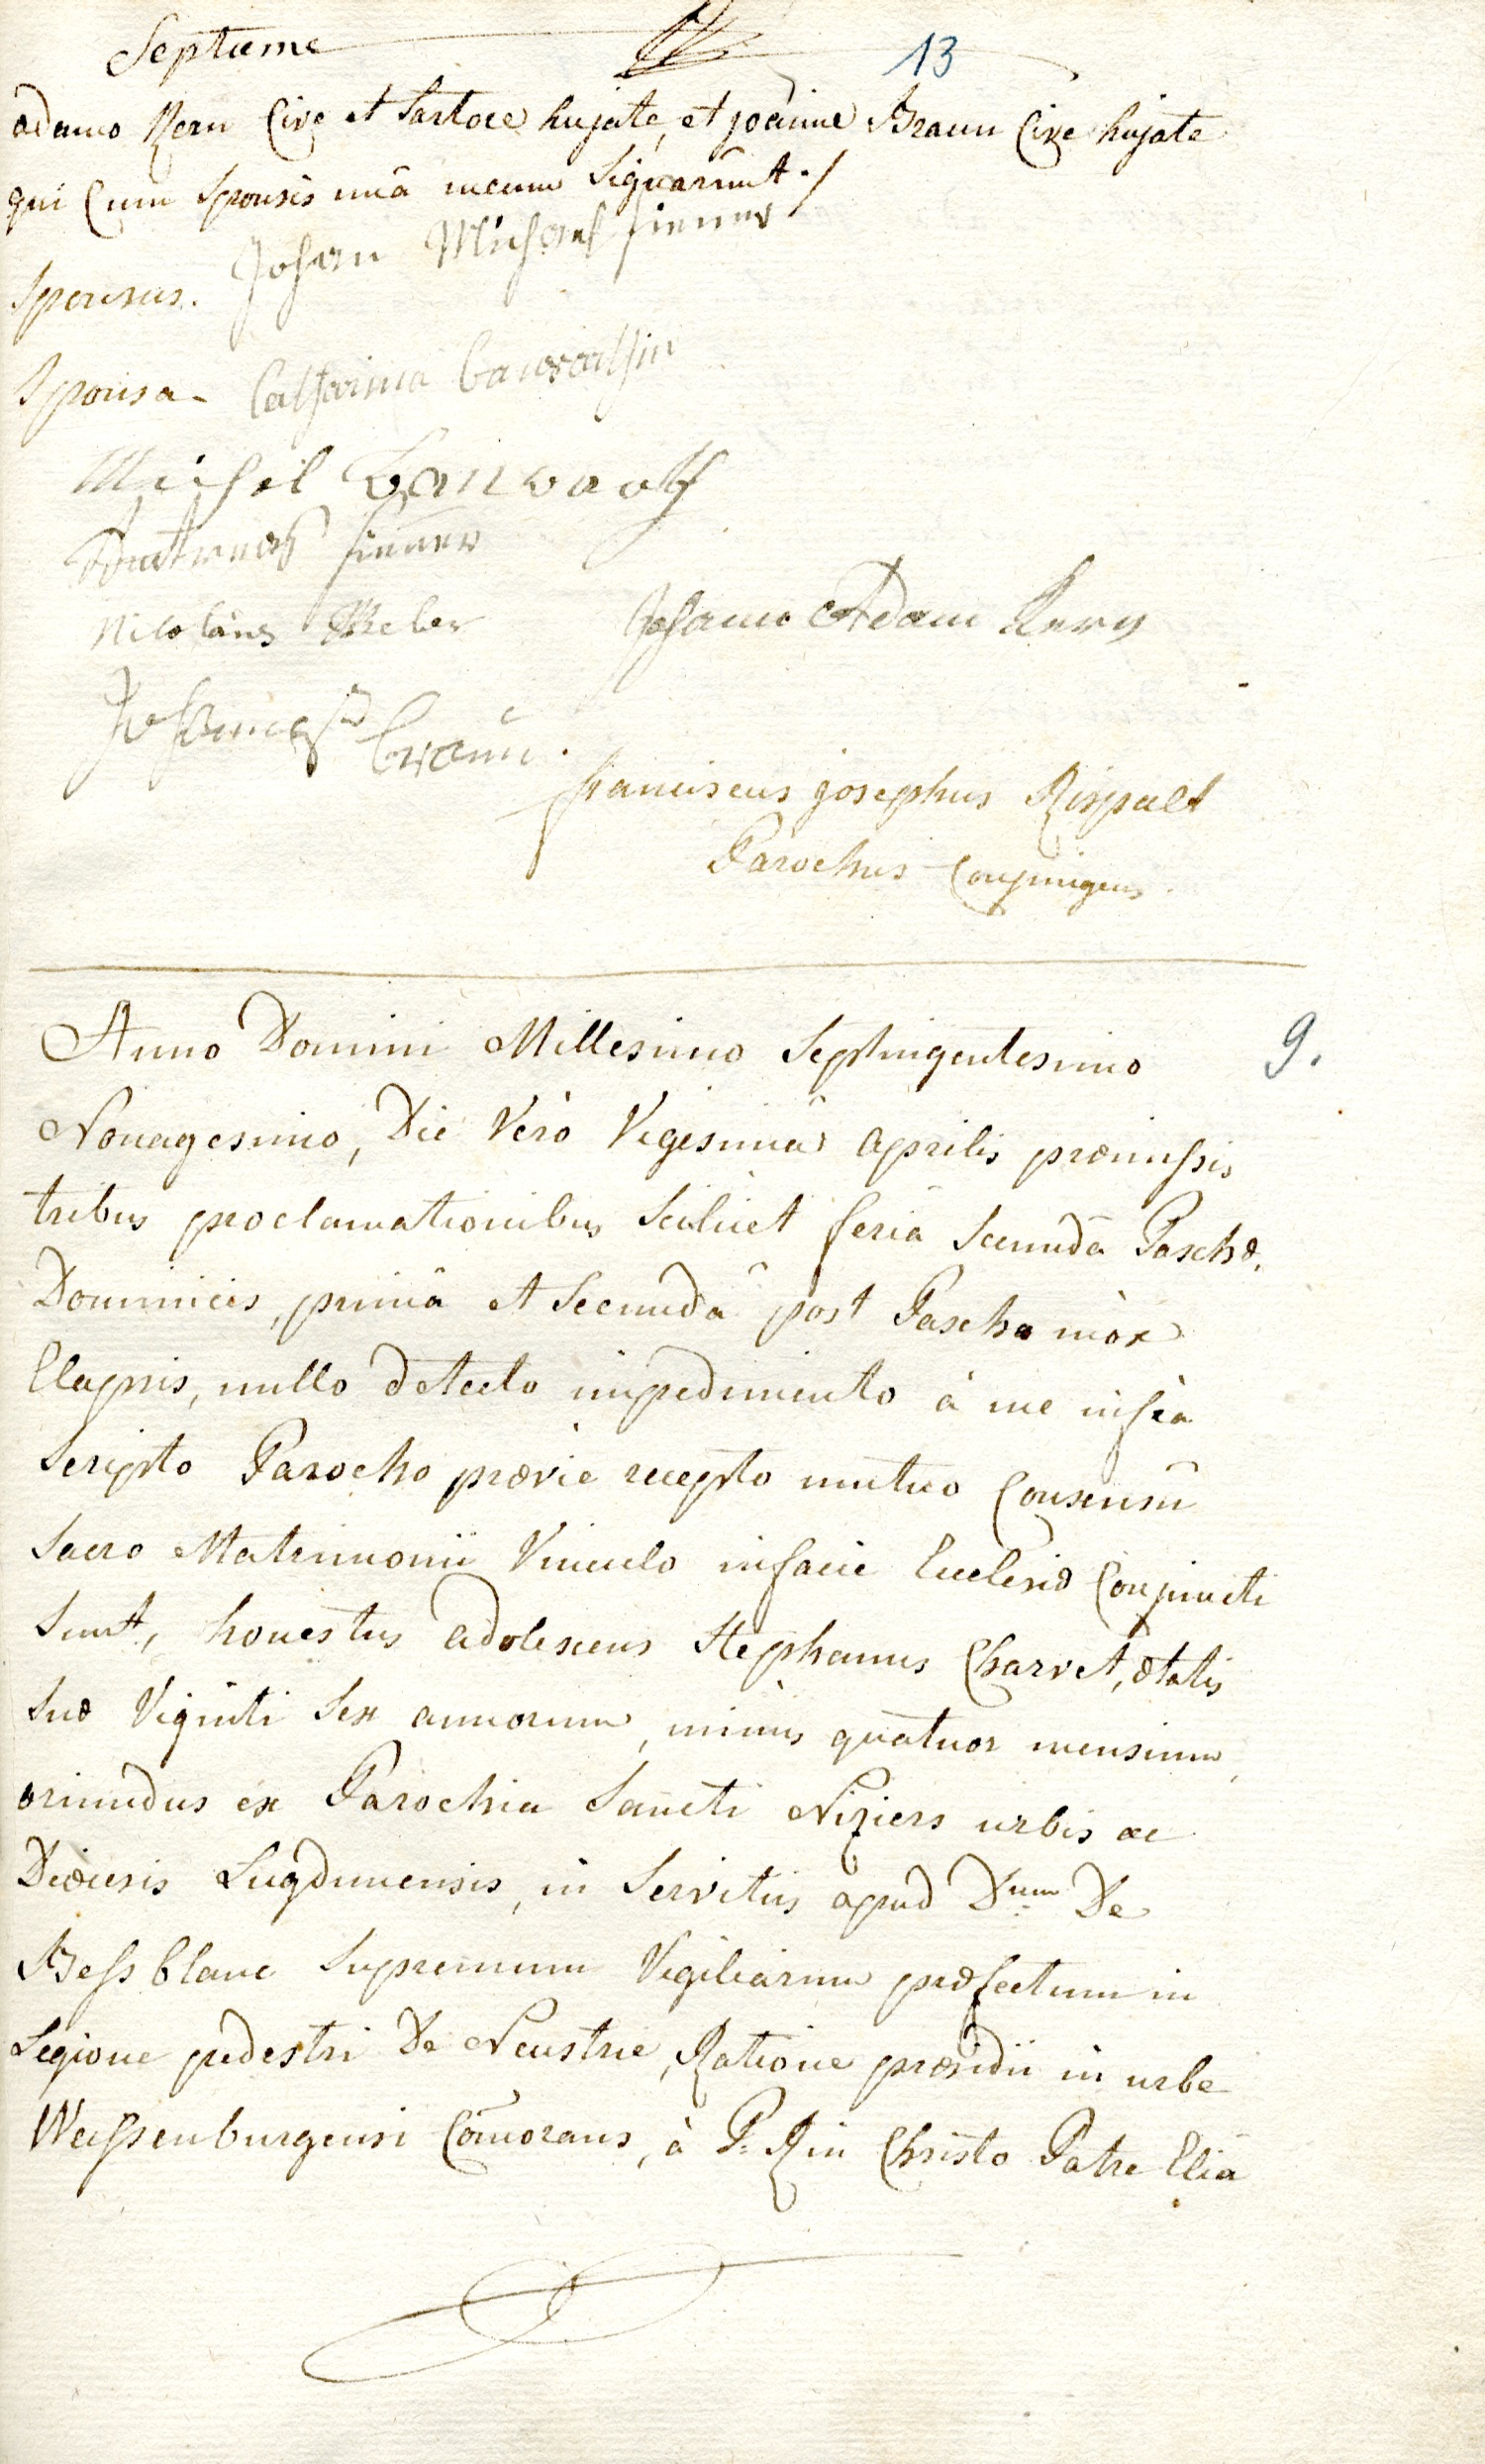 Septieme
13
adamo Kern Cive et Sartore hujate, et joanne Braun Cive hujate
qui Cum Sponsis unà mecum Signarunt ./
Johan Michael
Sponsus.
Sponsa - Catharina
Michel
Andtreas
Nicolaus Weber
Johann Adam Kern
Johannes braun.
franciscus josephus Rispalt
Parochus Conjungens
Anno Domini Millesimo Septingentesimo
9.
Nonagesimo, Die Verò Vigesimâ aprilis præmissis
tribus proclamationibus Scilicet feriâ Secundâ Paschæ,
Dominicis, primâ et Secundâ post Pascha mòx
Elapsis, nullo detecto impedimento à me infrà
Scripto Parocho prævie recepto mutuo Consensu
Sacro Matrimonii Vinculo in facie Ecclesiæ Conjuncti
Sunt, honestus adolescens Stephanus Charvet, ætatis
Suæ Viginti Sex annorum, minùs quatuor mensium,
oriundus ex Parochia Sancti Niziers urbis ac
Diœcesis Lugdunensis, in Servitiis apud Dnum De
Bessblanc Supremum Vigiliarum præfectum in
Legione pedestri De Neustrie, Ratione præsidii in urbe
Weissenburgensi Com̃orans, à P. R in Christo Patre Eliâ